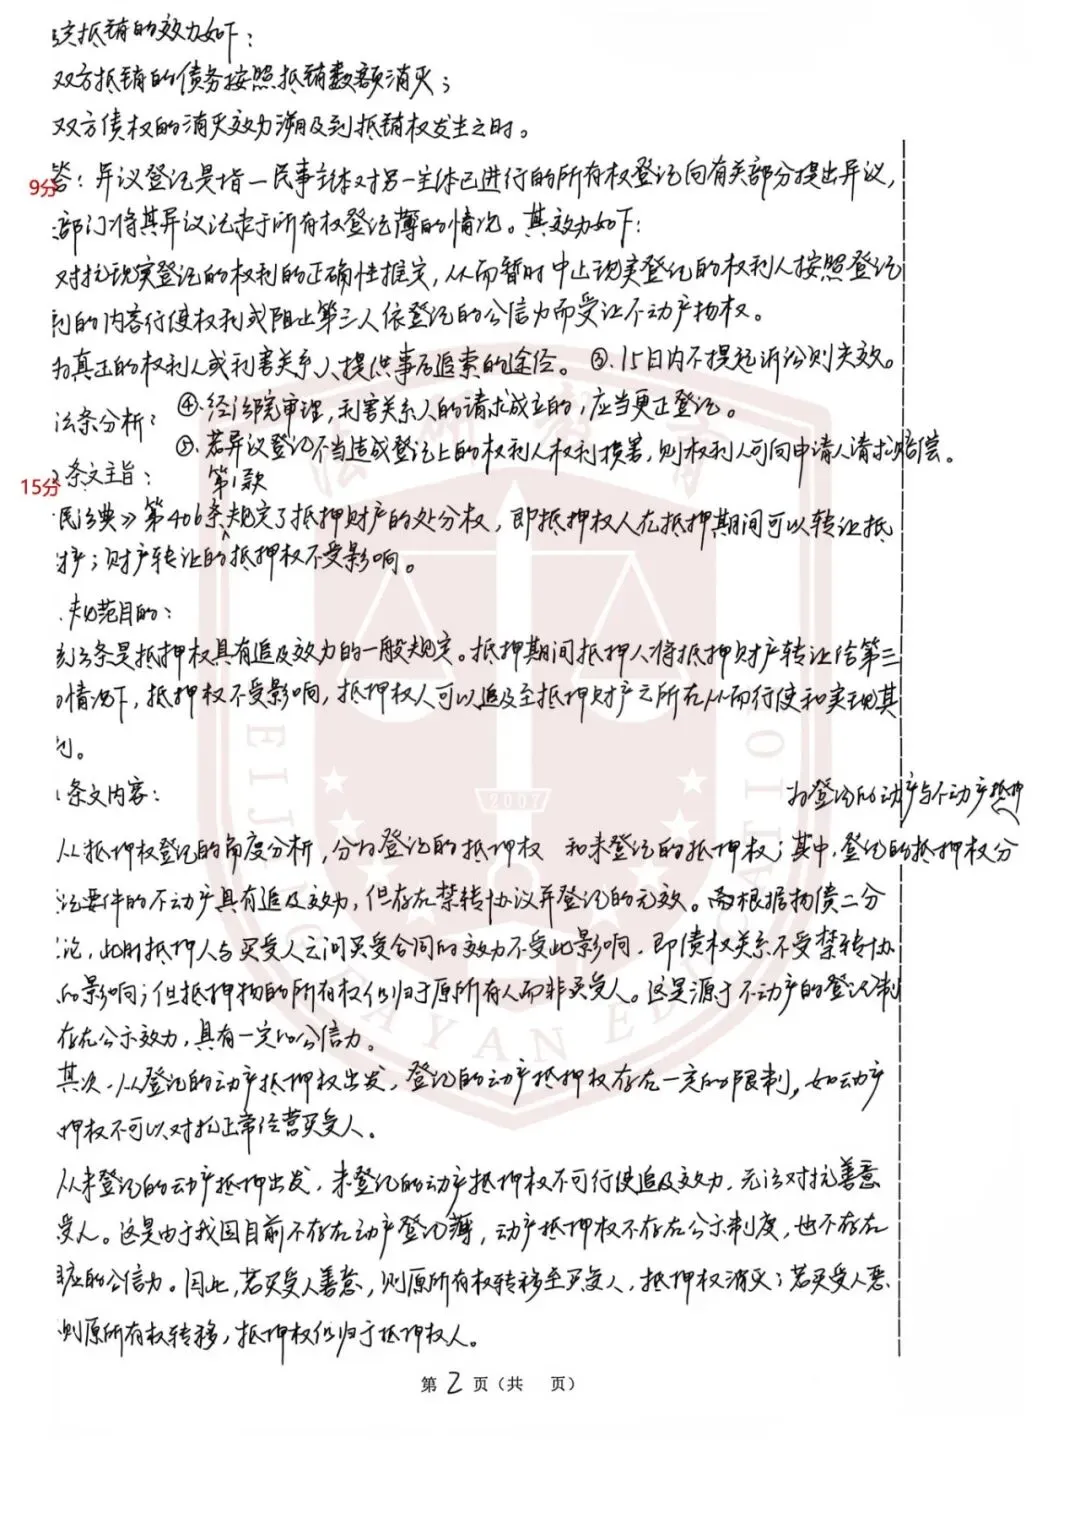 该抵销的效力如下：
双方抵销的债务按照抵销数额消灭；
双方债权的消灭效力溯及到抵销权发生之时。
9分
答：异议登记是指一民事主体对另一主体已进行的所有权登记向有关部分提出异议，
部门将其异议记录于所有权登记薄的情况。其效力如下：
对抗现实登记的权利的正确性推定，从而暂时中止现实登记的权利人按照登记
的内容行使权利或阻止第三人依登记的公信力而受让不动产物权。
为真正的权利人或利害关系人提供事后追索的途径。③.15日内不提起诉讼则失效。
④.经法院审理，利害关系人的请求成立的，应当更正登记。
法条分析：
⑤.若异议登记不当造成登记上的权利人权利损害，则权利人可向申请人请求赔偿。
15分
条文主旨：
第1款
民法典》第406条规定了抵押财产的处分权，即抵押权人在抵押期间可以转让抵
财产转让的抵押权不受影响。
.规范目的：
该条是抵押权具有追及效力的一般规定。抵押期间抵押人将抵押财产转让给第三
情况下，抵押权不受影响，抵押权人可以追及至抵押财产之所在从而行使和实现其
条文内容：
为登记的动产与不动产抵押
从抵押权登记的角度分析，分为登记的抵押权 和未登记的抵押权；其中，登记的抵押权分
要件的不动产具有追及效力，但存在禁转协议并登记的无效。而根据物债二分
论，此时抵押人与买受人之间买受合同的效力不受此影响，即债权关系不受禁转协
的影响；但抵押物的所有权仍归于原所有人而非买受人。这是源于不动产的登记制
存在公示效力，具有一定的公信力。
其次，从登记的动产抵押权出发，登记的动产抵押权存在一定的限制，如动产
押权不可以对抗正常经营买受人。
从未登记的动产抵押出发，未登记的动产抵押权不可行使追及效力，无法对抗善意
受人。这是由于我国目前不存在动产登记薄，动产抵押权不存在公示制度，也不存在
应的公信力。因此，若买受人善意，则原所有权转移至买受人，抵押权消灭；若买受人恶
则原所有权转移，抵押权仍归于抵押权人。
第 2 页（共 页）